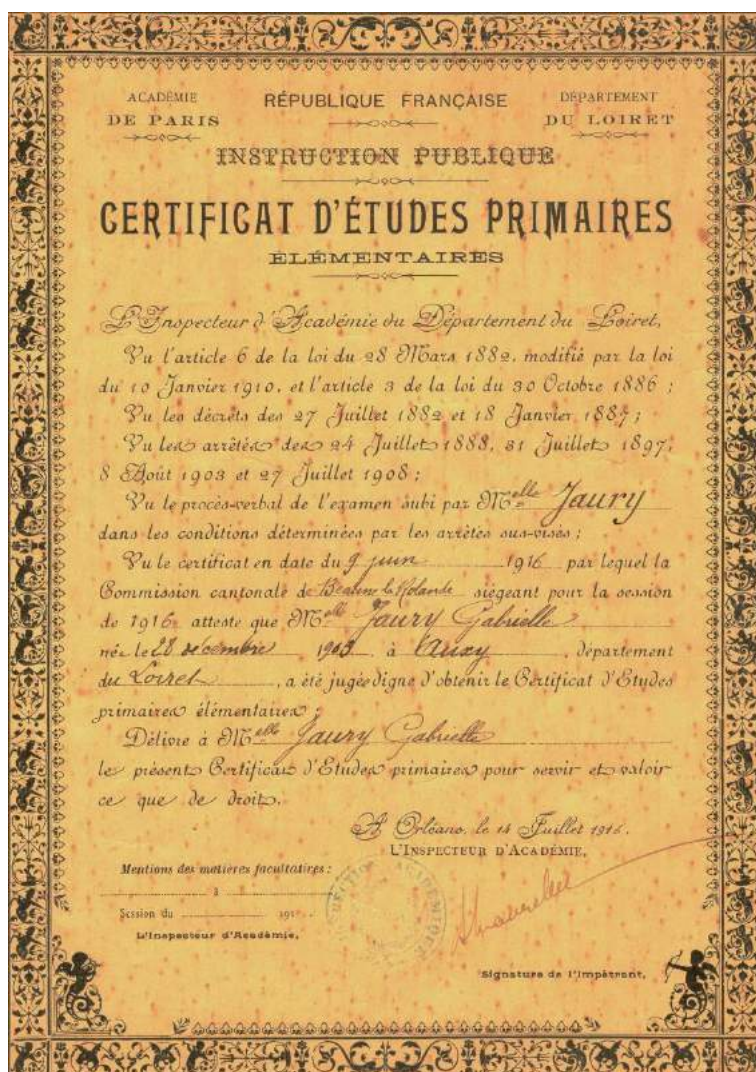 ACADÉMIE
DE PARIS
RÉPUBLIQUE FRANÇAISE
DÉPARTEMENT
DU LOIRET
INSTRUCTION PUBLIQUE
CERTIFICAT D'ÉTUDES PRIMAIRES
ÉLÉMENTAIRES
L'Inspecteur d'Académie du Département du Loiret,
Vu l'article 6 de la loi du 28 Mars 1882, modifié par la loi
du 10 Janvier 1910, et l'article 3 de la loi du 30 Octobre 1886 ;
Vu les décrets des 27 Juillet 1882 et 18 Janvier 1887 ;
Vu les arrêtés des 24 Juillet 1888, 31 Juillet 1897,
8 Août 1903 et 27 Juillet 1908 ;
Vu le procès-verbal de l'examen subi par Melle Jaury
dans les conditions déterminées par les arrêtés sus-visés ;
Vu le certificat en date du 9 juin 1916 par lequel la
Commission cantonale de Beaune la Rolande siégeant pour la session
de 1916 atteste que Melle Jaury Gabrielle
née le 28 décembre 1903 à Auxy, département
du Loiret, a été jugée digne d'obtenir le Certificat d'Etudes
primaires élémentaires ;
Délivre à Melle Jaury Gabrielle
le présent Certificat d'Etudes primaires pour servir et valoir
ce que de droit.
A Orléans, le 14 Juillet 1916.
L'INSPECTEUR D'ACADÉMIE,
Mentions des matières facultatives :
à
Session du 191
L'Inspecteur d'Académie,
Signature de l'Impétrant,